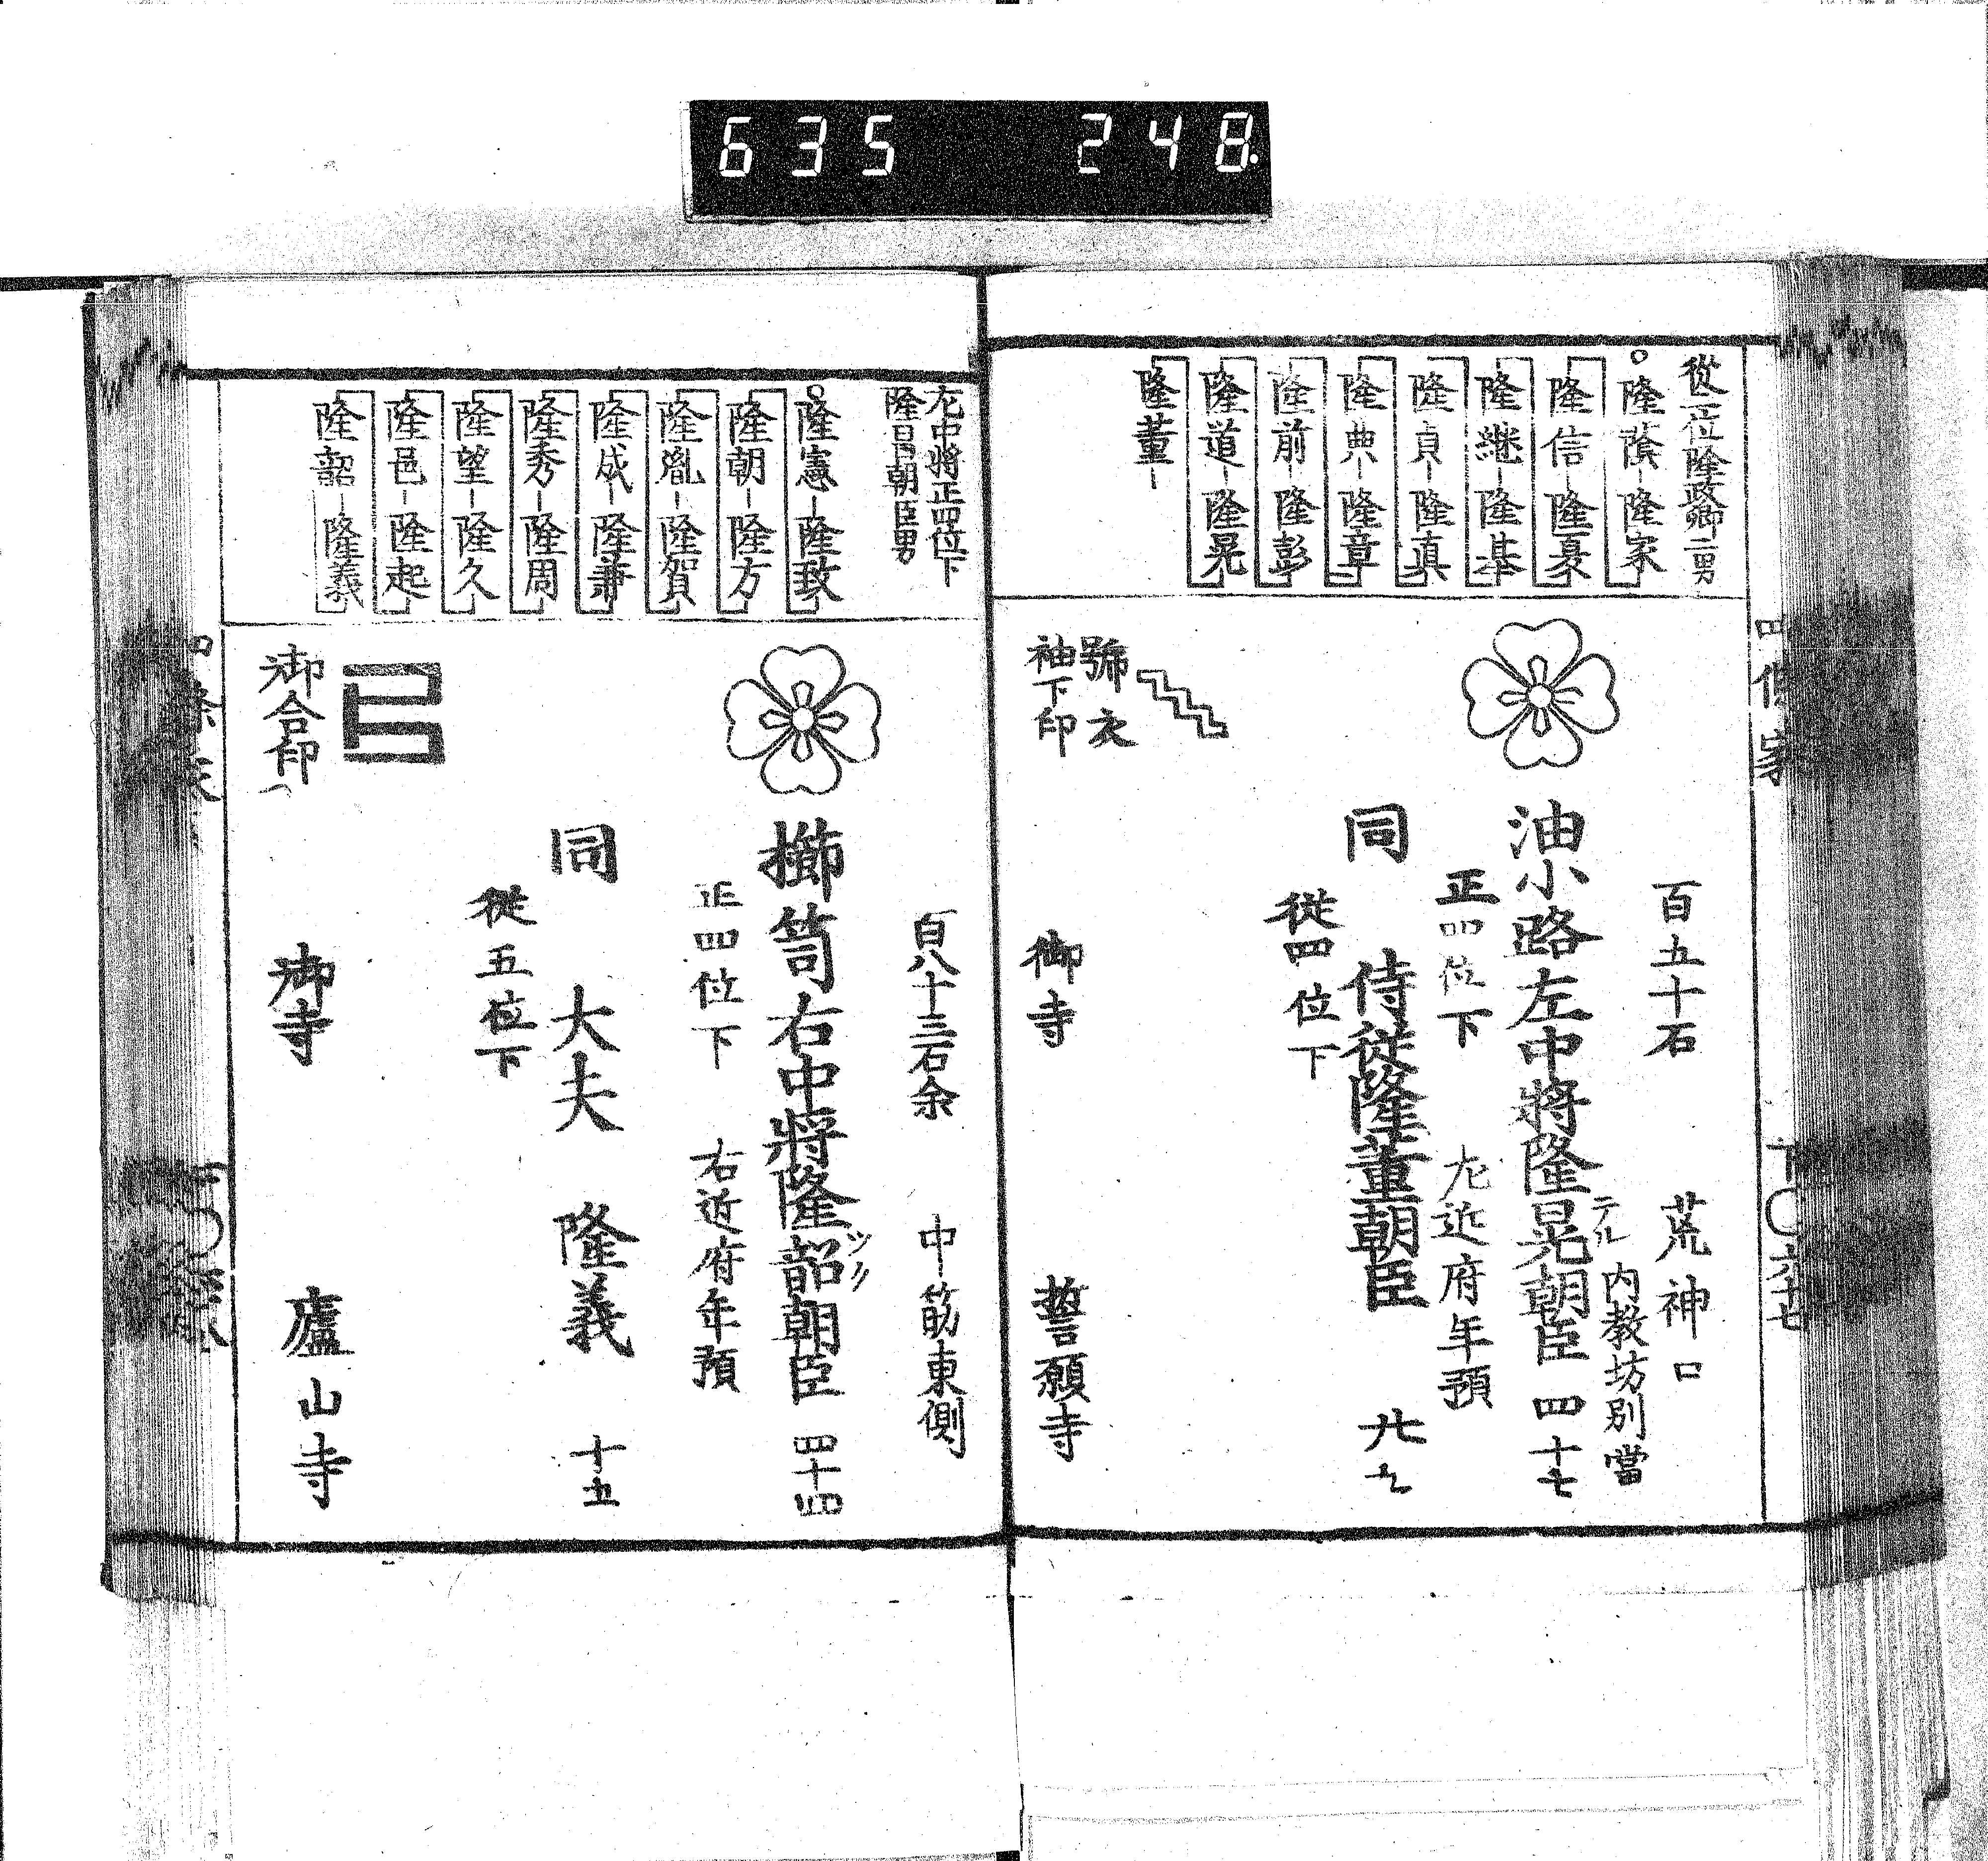 635 248
從一位隆政卿二男
隆蔭-隆家
隆信-隆夏
隆継-隆基
隆貞-隆真
隆典-隆章
隆前-隆彭
隆道-隆晃
隆董-
百五十石 荒神口
内教坊別當
油小路左中將隆晃朝臣 四十七
テル
正四位下 左近府年預
同 侍従隆董朝臣
從四位下
號衣
袖下印
御寺 誓願寺
左中將正四位下
隆昌朝臣男
隆憲-隆致
隆朝-隆方
隆胤-隆賀
隆成-隆兼
隆秀-隆周
隆望-隆久
隆邑-隆起
隆韶-隆義
百八十三石余 中筋東側
櫛笥右中將隆韶朝臣 四十四
正四位下 右近府年預
同 大夫 隆義 十五
從五位下
御合印
御寺 廬山寺